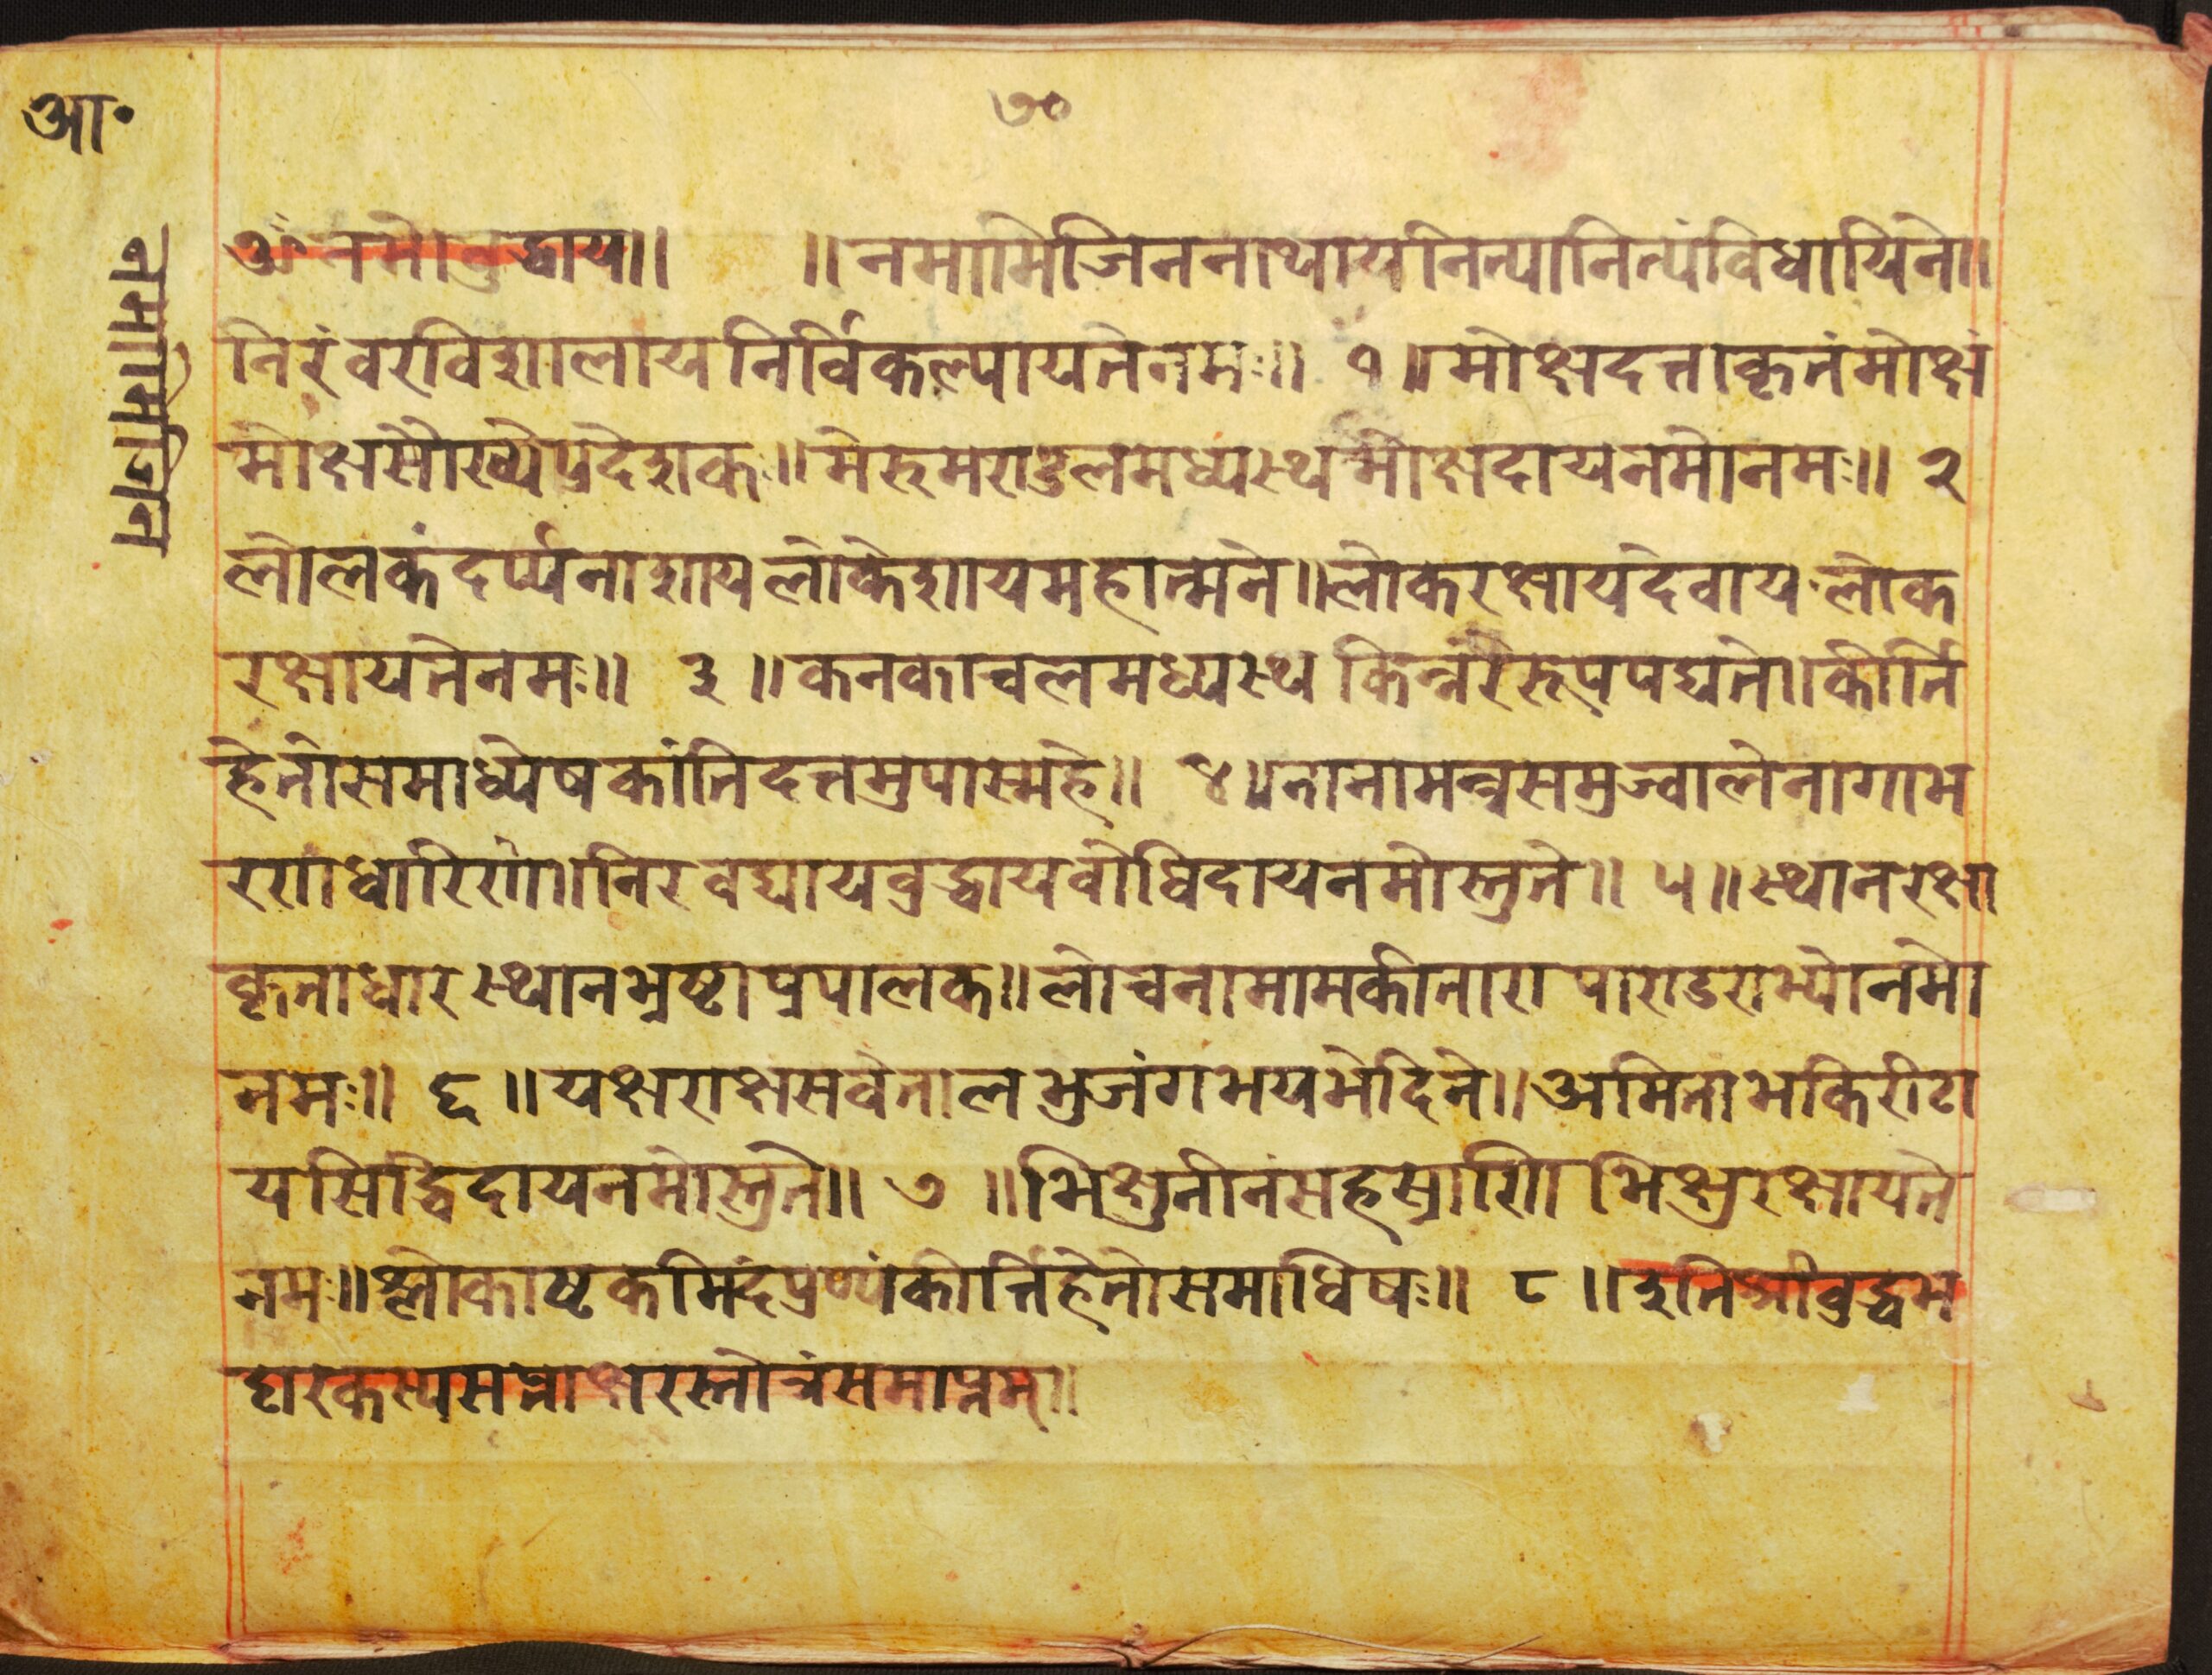 ७०
आ॰
नमामिजिन
ॐनमोबुद्धाय॥ ॥नमामिजिननाथायनित्यानित्यंविधायिने॥
निरंवरविशालायनिर्विकल्पायतेनमः॥ १॥मोक्षदत्ताकृतंमोक्षं
मोक्षसौख्यंप्रदेशकः॥मेरुमण्डलमध्यस्थंमोक्षदायनमोनमः॥ २
लोलकंदर्प्पनाशायलोकेशायमहात्मने॥लोकरक्षायदेवायलोक
रक्षायतेनमः॥ ३॥कनकाचलमध्यस्थकिन्नरैरूपपद्यते॥कीर्ति
हेतोसमाध्येषकांतिदत्तमुपास्महे॥ ४॥नानामन्त्रसमुज्वालेनागाभ
रणधारिणे॥निरवद्यायबुद्धायबोधिदायनमोस्तुते॥ ५॥स्थानरक्षा
कृताधारस्थानभ्रष्टाप्रपालक॥लोचनामामकीतारापाण्डराभ्योनमो
नमः॥ ६॥यक्षराक्षसवेतालभुजंगभयभेदिने॥अमिताभकिरीटा
यसिद्धिदायनमोस्तुते॥ ७॥भिक्षुनीनंसहस्राणिभिक्षुरक्षायते
नमः॥श्लोकाष्टकमिदंप्रण्यंकीर्त्तिहेतोसमाधिषः॥ ८॥इतिश्रीबुद्धभ
ट्टारकस्यसप्ताक्षरस्तोत्रंसमाप्तम्॥